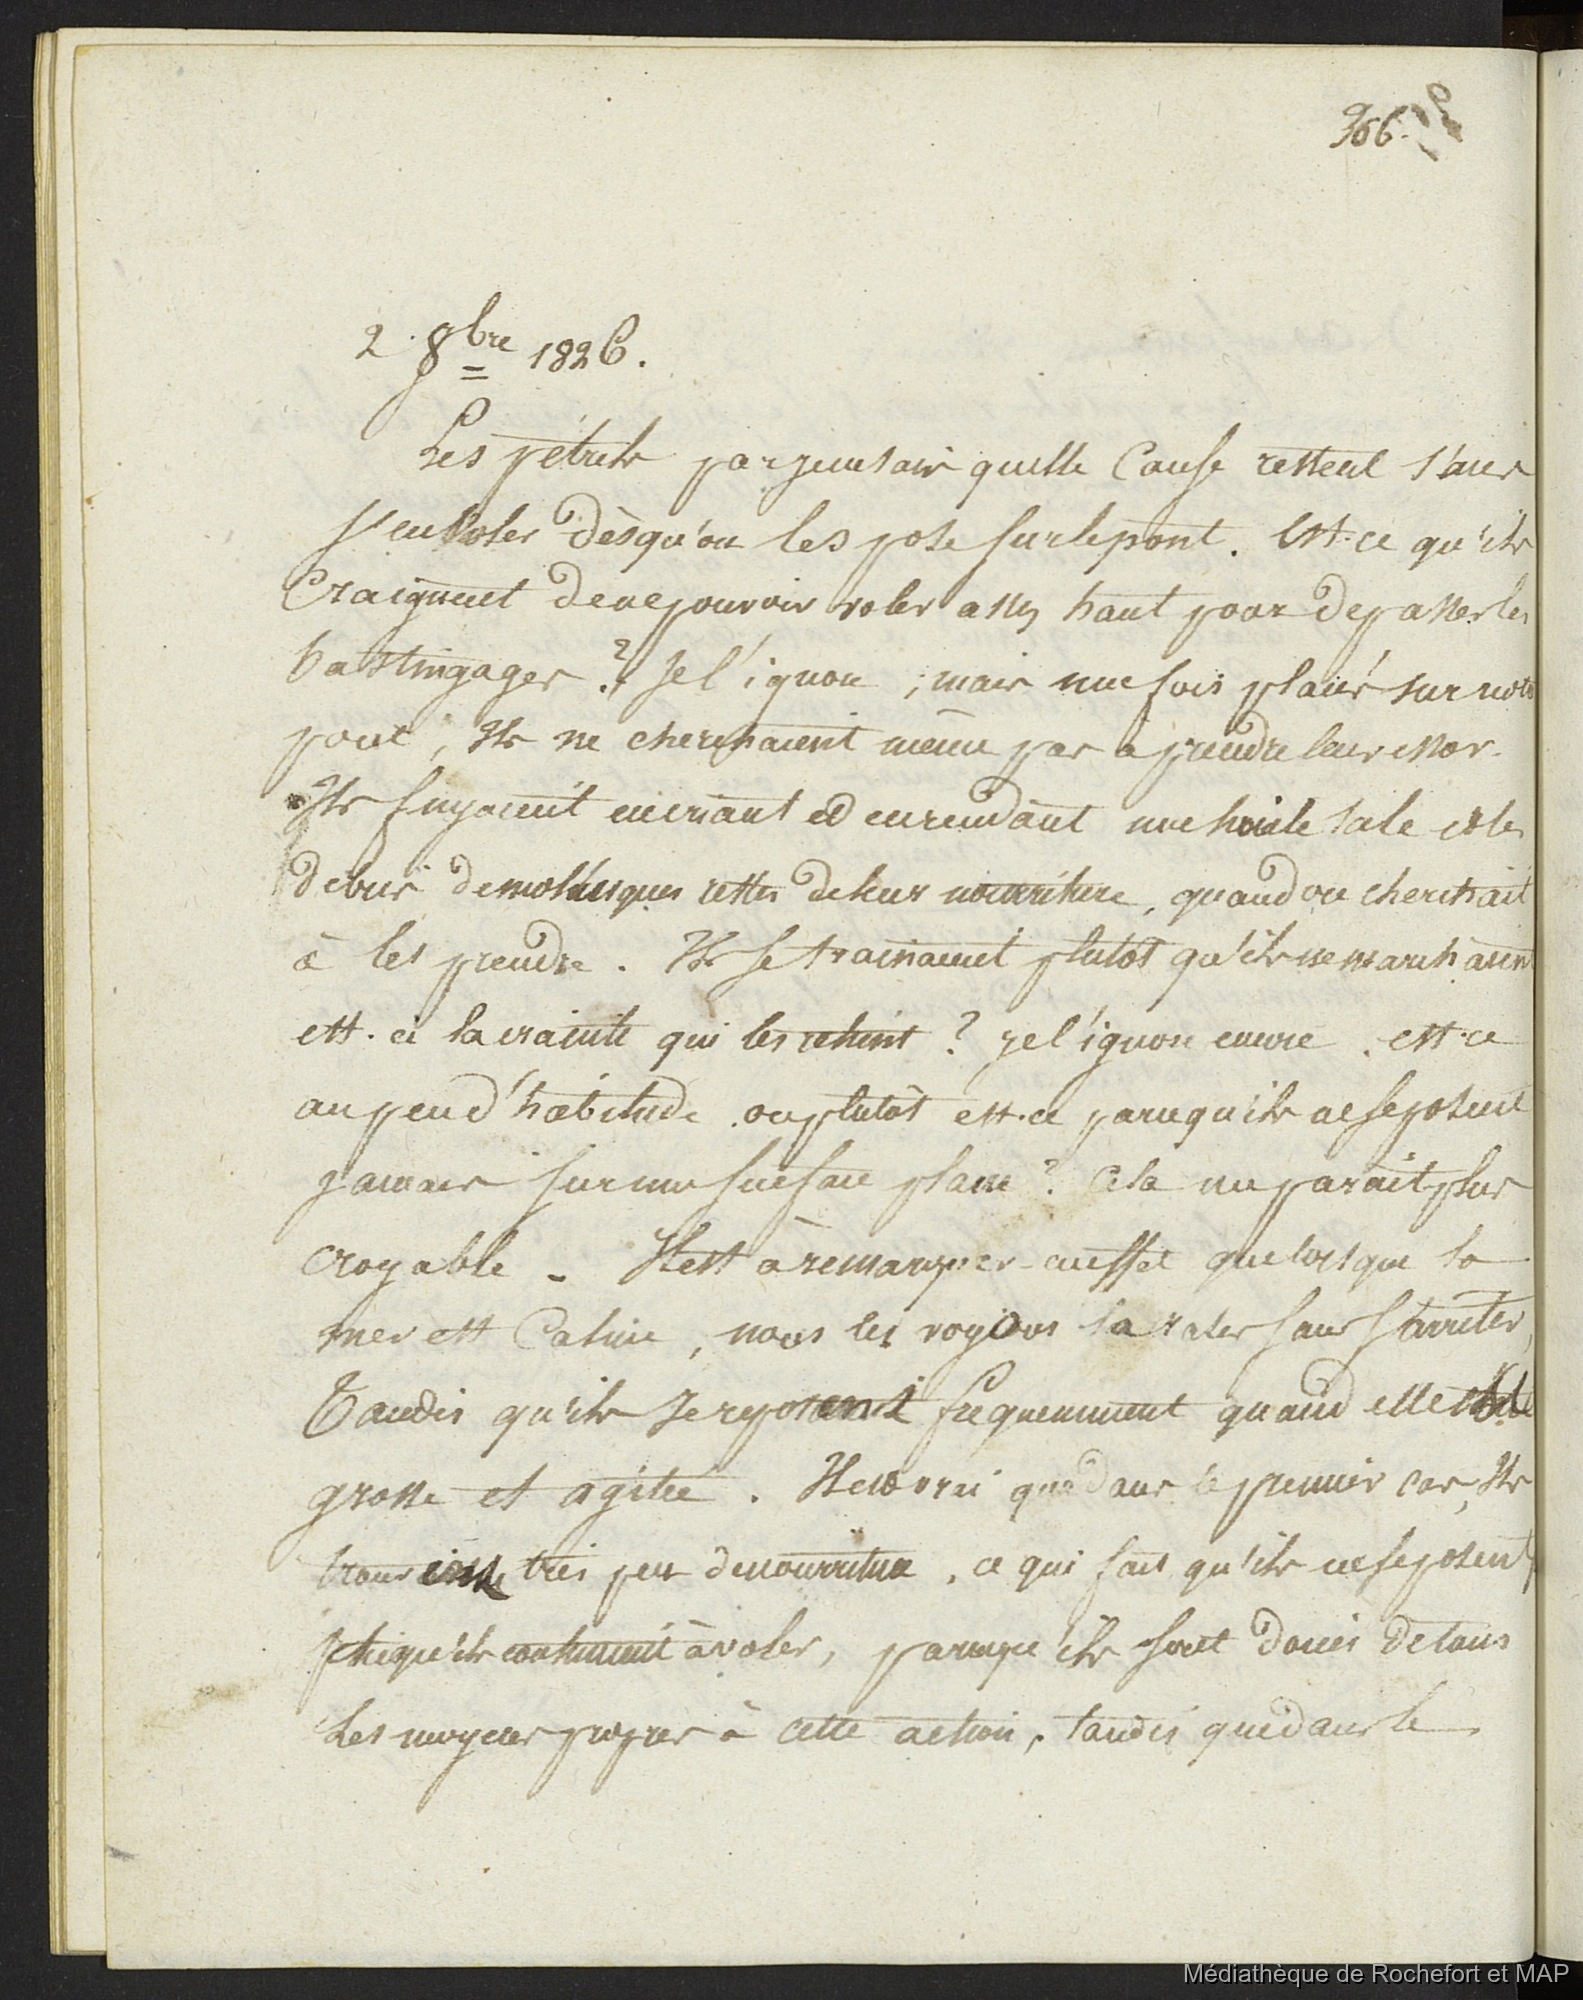 366.
2. 8bre 1826.
Les pétrels par je ne sais quelle Cause restent sans
s'envoler dès qu'on les pose sur le pont. Est-ce qu'ils
Craignent de ne pouvoir voler assez haut pour depasser les
bastingages ? Je l'ignore ; mais une fois placés sur notre
pont, Ils ne cherchaient même pas à prendre leur essor.
Ils fuyaient en criant et en rendant une huile sale et les
debris de mollusques restes de leur nourriture, quand on cherchait
à les prendre. Ils se trainaient plutôt qu'ils ne marchaient
est-ce la crainte qui les retient ? je l'ignore encore. est-ce
un peu d'habitude. ou plutôt est-ce parce qu'ils ne se posent
jamais sur une surface plane ? Cela me parait plus
croyable. Il est à remarquer en effet que lorsque la
mer est Calme, nous les voyons la raser sans s'arrêter,
Tandis qu'ils se reposent frequemment quand elle est
grosse et agitée. Il est vrai que dans le premier cas, Ils
trouvent très peu de nourriture, ce qui fait qu'ils ne se posent
qu'ils continuent à voler, parcequ'ils sont doués de tous
les moyens propres à cette action, tandis que dans le
Médiathèque de Rochefort et MAP